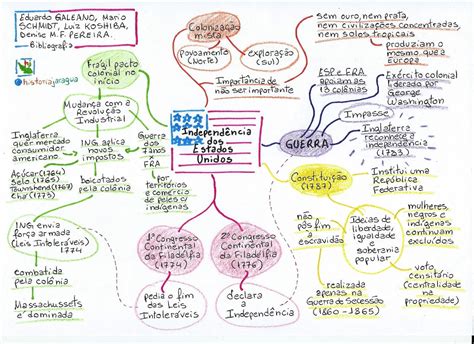 Eduardo GALEANO, Mario
SCHMIDT, Luiz KOSHIBA,
Denise M.F. PEREIRA.
Bibliografia
@historiajaragua
Frágil pacto
colonial no
início
Mudança com a
Revolução
Industrial
Inglaterra
quer mercado
consumidor
americano
ING. aplica
novos
impostos
Açúcar (1764)
Selo (1765)
Townshend (1767)
Chá (1773)
boicotados
pela colônia
Guerra
dos
7 anos
ING
x
FRA
por
territórios
e comércio
de peles c/
indígenas
ING envia
força armada
(Leis Intoleráveis)
1774
combatida
pela colônia
Massachussets
é dominada
Colonização
mista
povoamento
(Norte)
exploração
(Sul)
Importância de
não ser importante
sem ouro, nem prata,
nem civilizações concentradas,
nem solos tropicais
produziam o
mesmo que a
Europa
Independência
dos
Estados
Unidos
GUERRA
ESP e FRA
apoiam as
13 colônias
Exército colonial
liderado por
George
Washington
Impasse
Inglaterra
reconhece a
independência
(1783)
Constituição
(1787)
Institui uma
República
Federativa
Ideias de
liberdade,
igualdade
e
soberania
popular
não
pôs fim
à
escravidão
mulheres,
negros e
indígenas
continuam
excluídos
voto
censitário
(centralidade
na
propriedade)
realizada
apenas na
Guerra de Secessão
(1860-1865)
1º Congresso
Continental
da Filadélfia
(1774)
pedia o fim
das Leis
Intoleráveis
2º Congresso
Continental
da Filadélfia
(1776)
declara
a
Independência